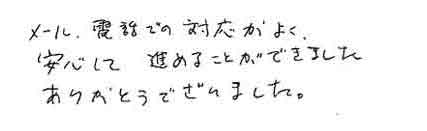 メール、電話での対応がよく、
安心して進めることができました
ありがとうございました。